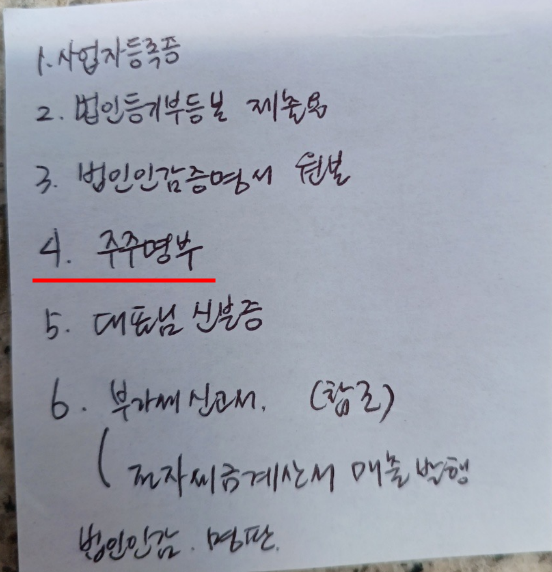 1. 사업자등록증
2. 법인등기부등본 제출용
3. 법인인감증명서 원본
4. 주주명부
5. 대표님 신분증
6. 부가세신고서. (참조)
( 전자세금계산서 매출 발행
법인인감. 명판.